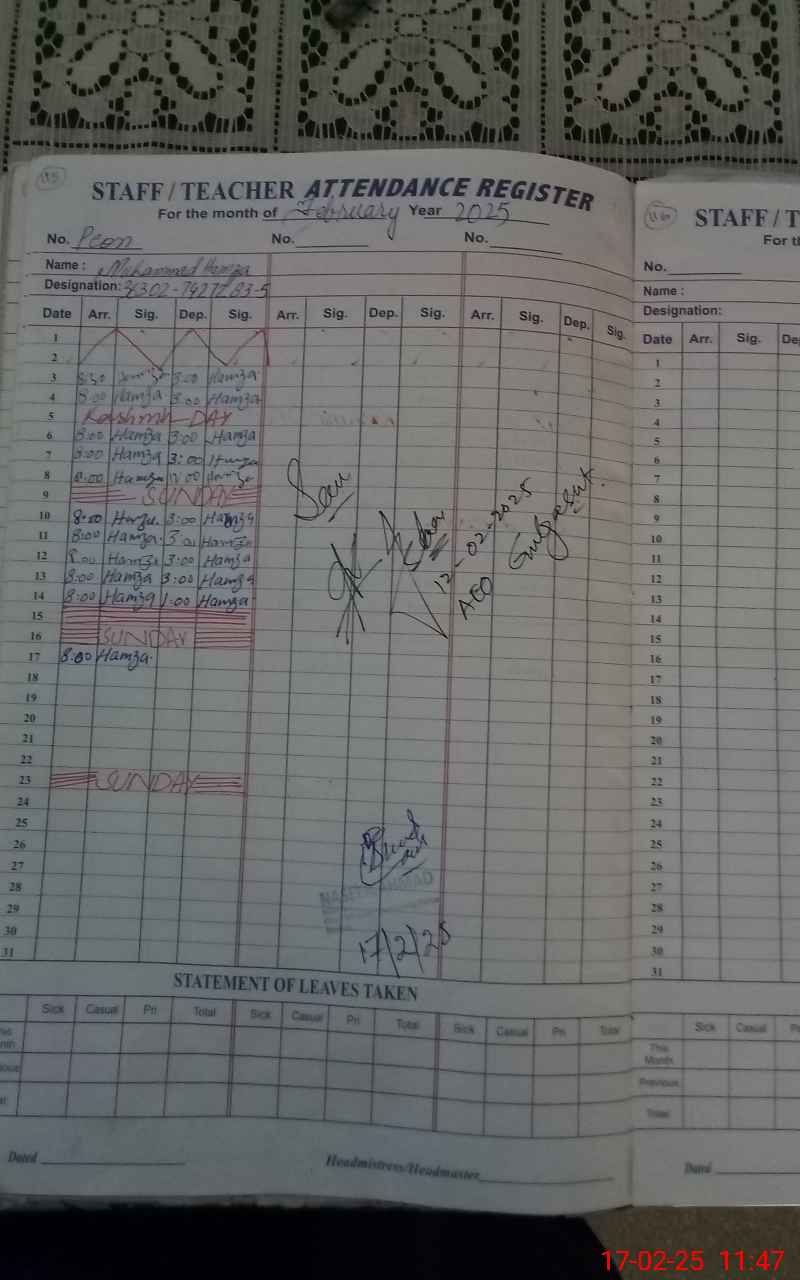 115
STAFF / TEACHER ATTENDANCE REGISTER
For the month of February Year 2025
No. Peon No. No.
Name : Muhammad Hamza
Designation:
Date Arr. Sig. Dep. Sig. Arr. Sig. Dep. Sig. Arr. Sig. Dep. Sig.
1
2
3 8:30 3:00 Hamza
4 8:00 Hamza 3:00 Hamza
5 Kashmir DAY
6 8:00 Hamza 3:00 Hamza
7 8:00 Hamza 3:00 Hamza
8 8:00 Hamza 12:00
9 SUNDAY
10 8:00 Hamza 3:00 Hamza
11 8:00 Hamza 3:00 Hamza
12 8:00 Hamza 3:00 Hamza
13 8:00 Hamza 3:00 Hamza
14 8:00 Hamza 1:00 Hamza
15
16 SUNDAY
17 8:00 Hamza
18
19
20
21
22
23 SUNDAY
24
25
26
27
28
29
30
31
Seen
12-02-2025
AEO
17/2/25
STATEMENT OF LEAVES TAKEN
Sick Casual Pri Total Sick Casual Pri Total Sick Casual Pri Total
Dated
Headmistress/Headmaster
116
STAFF / T
For th
No.
Name :
Designation:
Date Arr. Sig. De
1
2
3
4
5
6
7
8
9
10
11
12
13
14
15
16
17
18
19
20
21
22
23
24
25
26
27
28
29
30
31
Sick Casual P
This Month
Previous
Total
Dated
17-02-25 11:47